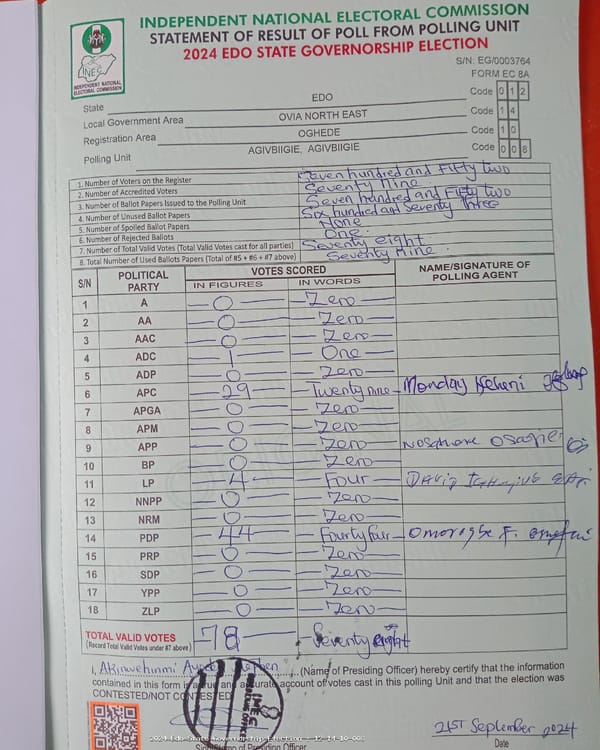 INDEPENDENT NATIONAL ELECTORAL COMMISSION
STATEMENT OF RESULT OF POLL FROM POLLING UNIT
2024 EDO STATE GOVERNORSHIP ELECTION
INEC
INDEPENDENT NATIONAL ELECTORAL COMMISSION
S/N: EG/0003764
FORM EC 8A
State EDO Code 0 1 2
Local Government Area OVIA NORTH EAST Code 1 4
Registration Area OGHEDE Code 1 0
Polling Unit AGIVBIIGIE, AGIVBIIGIE Code 0 0 8
1. Number of Voters on the Register Seven hundred and Fifty two
2. Number of Accredited Voters Seventy Nine
3. Number of Ballot Papers Issued to the Polling Unit Seven hundred and Fifty two
4. Number of Unused Ballot Papers Six hundred and Seventy Three
5. Number of Spoiled Ballot Papers None
6. Number of Rejected Ballots One
7. Number of Total Valid Votes (Total Valid Votes cast for all parties) Seventy eight
8. Total Number of Used Ballots Papers (Total of #5 + #6 + #7 above) Seventy Nine
S/N POLITICAL PARTY VOTES SCORED NAME/SIGNATURE OF POLLING AGENT
IN FIGURES IN WORDS
1 A 0 Zero
2 AA 0 Zero
3 AAC 0 Zero
4 ADC 1 One
5 ADP 0 Zero
6 APC 29 Twenty nine Monday
7 APGA 0 Zero
8 APM 0 Zero
9 APP 0 Zero Osagie
10 BP 0 Zero
11 LP 4 Four David
12 NNPP 0 Zero
13 NRM 0 Zero
14 PDP 44 Fourty four Omorogbe F.
15 PRP 0 Zero
16 SDP 0 Zero
17 YPP 0 Zero
18 ZLP 0 Zero
TOTAL VALID VOTES 78 Seventy eight
(Record Total Valid Votes under #7 above)
I, Akinwehinmi (Name of Presiding Officer) hereby certify that the information
contained in this form is a true and accurate account of votes cast in this polling Unit and that the election was
CONTESTED/NOT CONTESTED.
INEC
2024 Edo State Governorship Election
21ST September 2024
Date
of Presiding Officer